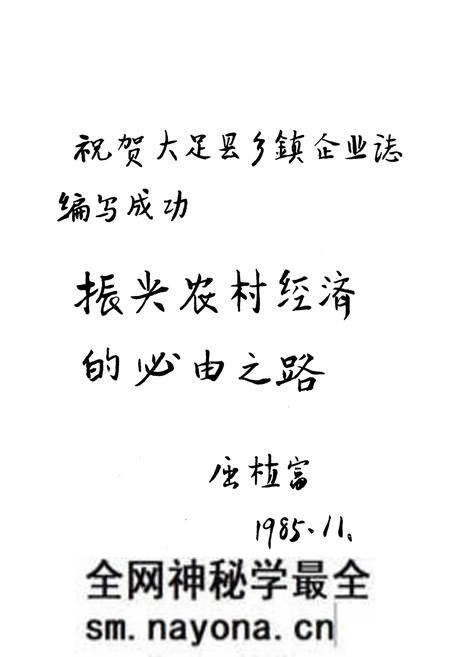 祝贺大足县乡鎮企业誌
编写成功
振兴农村经济
的必由之路
屈植富
1985.11.
全网神秘学最全
sm.nayona.cn